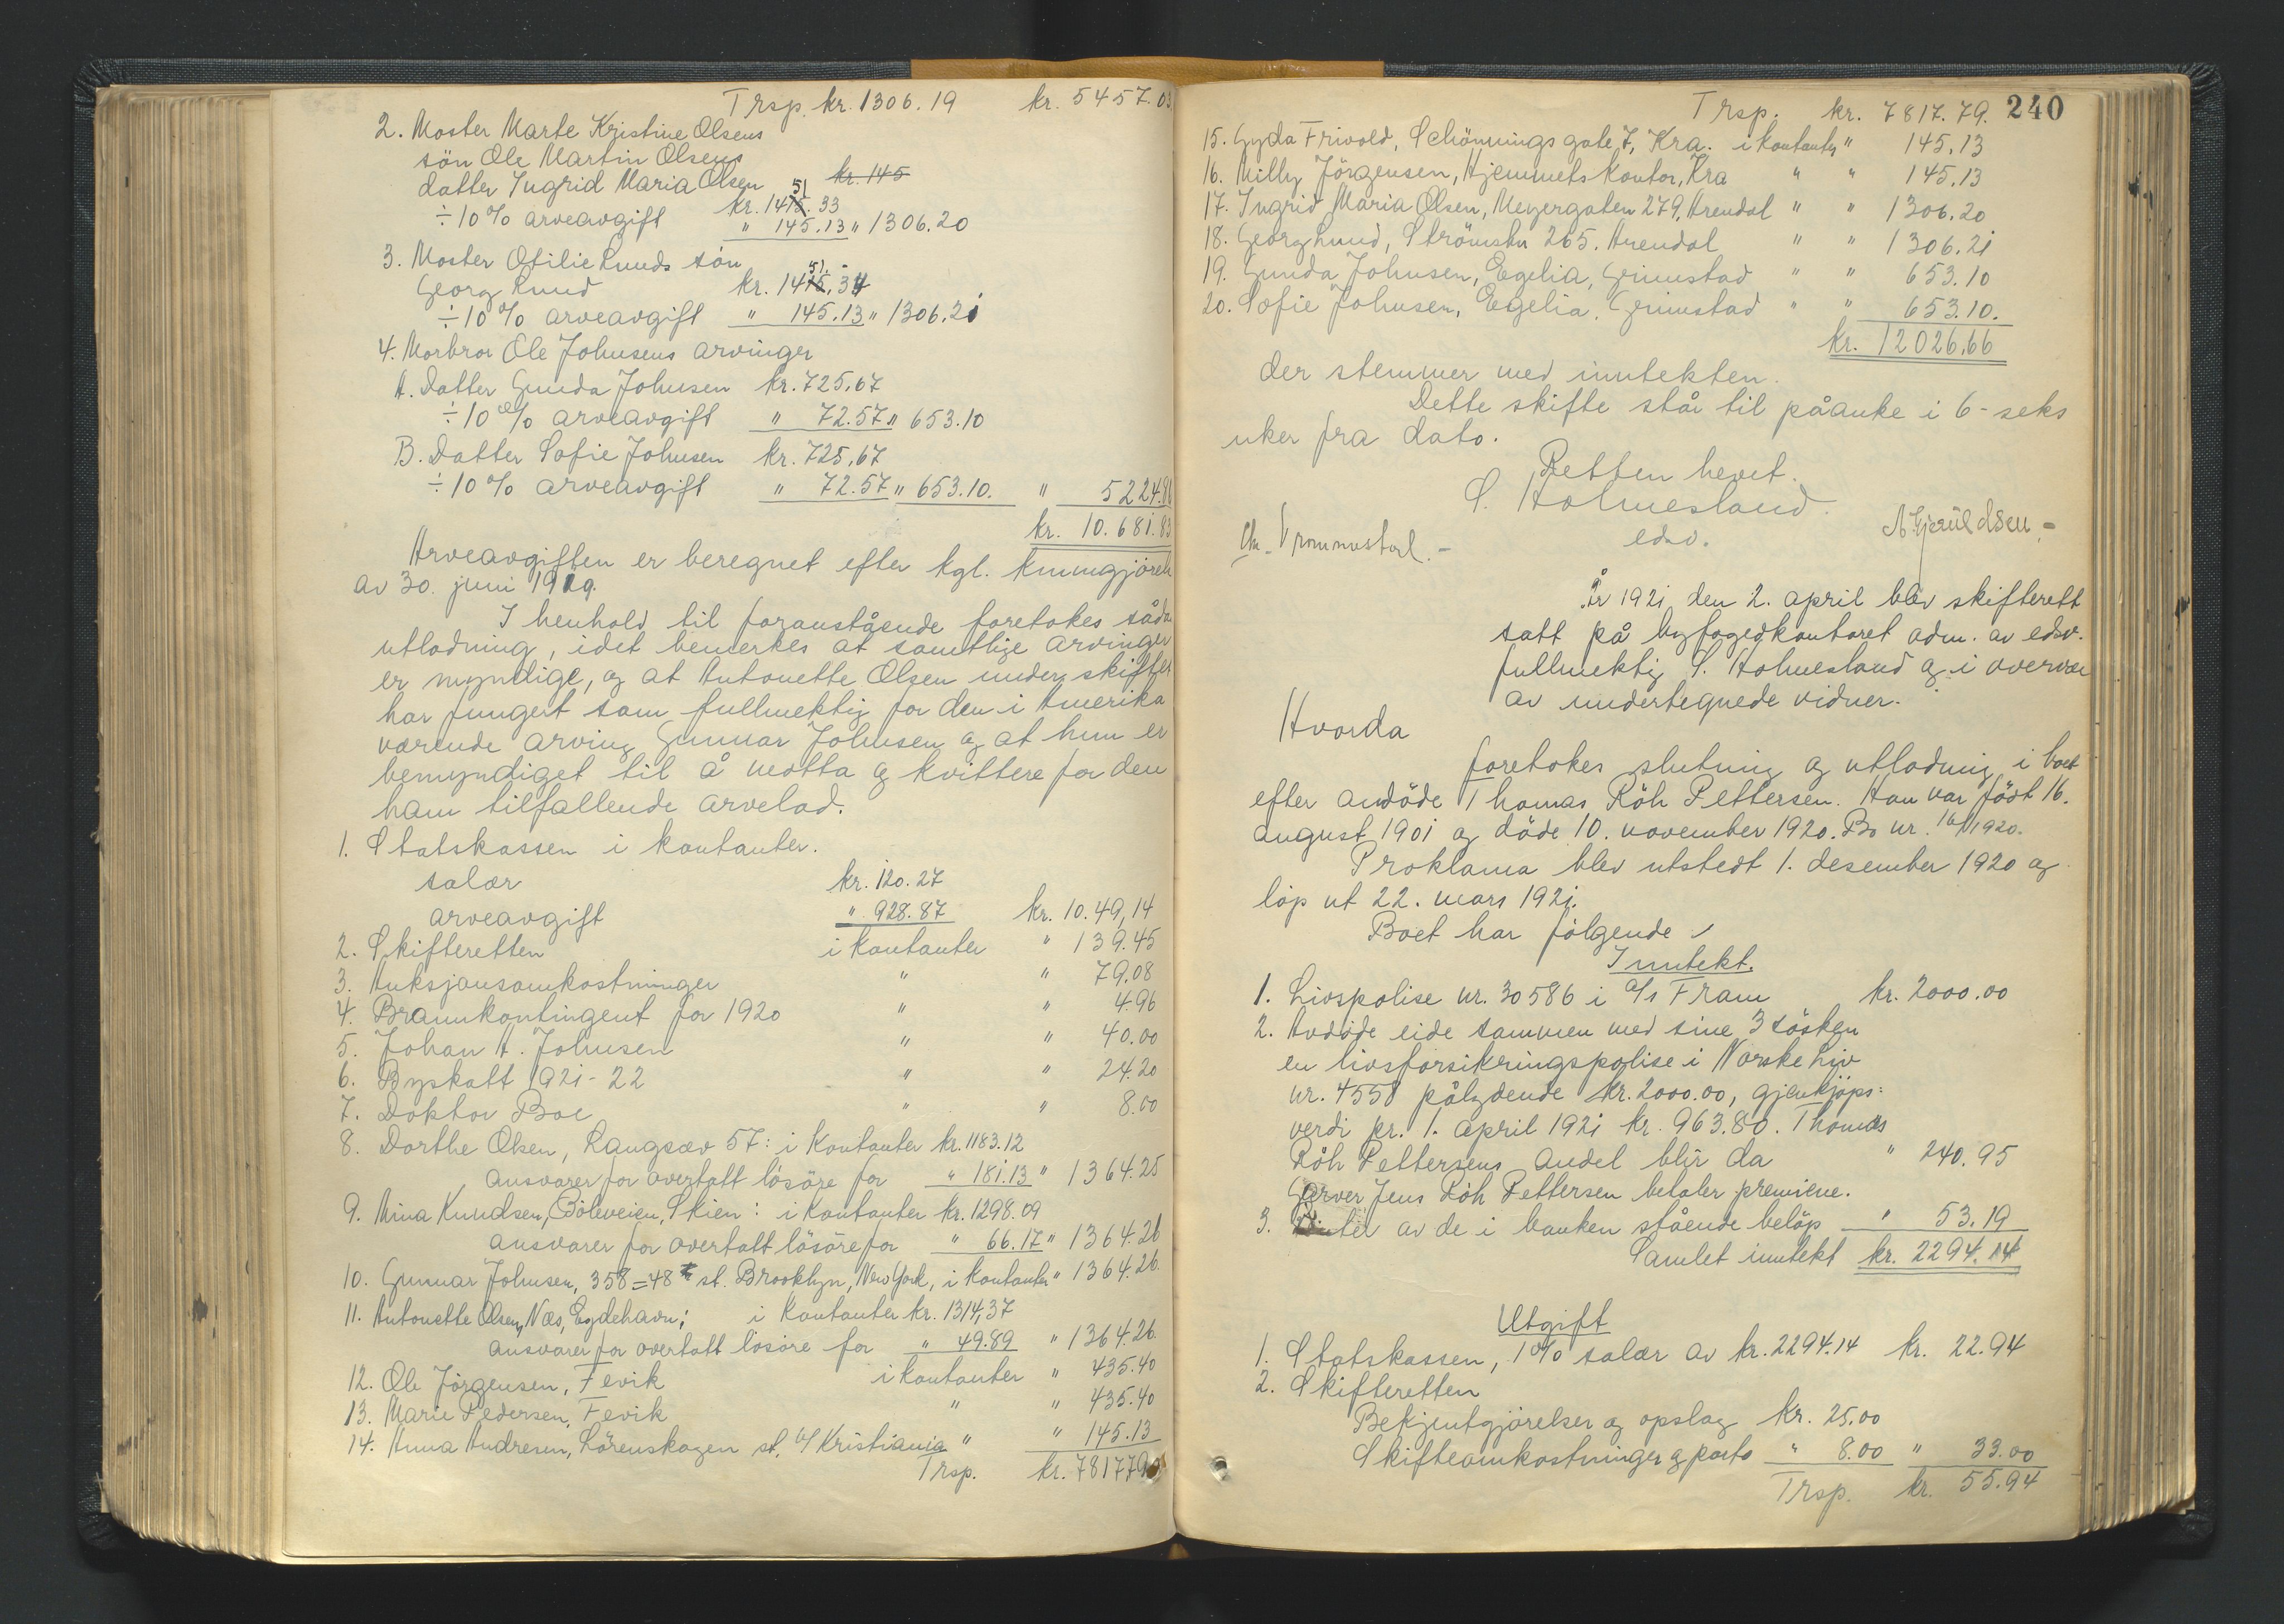 Trsp. kr. 1306.19 kr. 5457.03
2. Moster Marte Kristine Olsens
sön Ole Martin Olsens
datter Ingrid Maria Olsen kr. 145
kr. 1451.33
÷ 10 % arveavgift " 145.13 " 1306.20
3. Moster Otilie Lunds sön
Georg Lund kr. 1451.34
÷ 10 % arveavgift " 145.13 " 1306.21
4. Morbror Ole Johnsens arvinger
A. Datter Gunda Johnsen kr. 725,67
÷ 10 % arveavgift " 72.57 " 653.10
B. Datter Sofie Johnsen kr. 725,67
÷ 10 % arveavgift " 72.57 " 653.10. " 5224.80
kr. 10.681.83
Arveavgiften er beregnet efter kgl. kunngjöreh
av 30. juni 1919.
I henhold til foranstående foretokes såda
utlodning, idet bemerkes at samtlige arvinger
er myndige, og at Antonette Olsen under skiftet
har fungert som fullmektig for den i Amerika
værende arving Gunnar Johnsen og at hun er
bemyndiget til å motta og kvittere for den
ham tilfallende arvelod.
1. Statskassen i kontanter.
salær kr. 120.27
arveavgift " 928.87 kr. 10.49,14
2. Skifteretten i kontanter " 139.45
3. Auksjonsomkostninger " " 79.08
4. Brannkontingent for 1920 " " 4.96
5. Johan A. Johnsen " " 40.00
6. Byskatt 1921-22 " " 24.20
7. Doktor Boe " " 8.00
8. Dorthe Olsen, Langsæv 57: i kontanter kr. 1183.12
ansvarer for overtatt lösöre for " 181.13 " 1364.25
9. Mina Knudsen, Böleveien, Skien: i kontanter kr. 1298.09
ansvarer for overtatt lösöre for " 66.17 " 1364.26
10. Gunnar Johnsen, 358=48 st. Brooklyn, New York, i kontanter " 1364.26
11. Antonette Olsen, Næs, Eydehavn; i kontanter kr. 1314,37
ansvarer for overtatt lösöre for " 49.89 " 1364.26
12. Ole Jörgensen, Fevik i kontanter " 435.40
13. Marie Pedersen, Fevik " " 435.40
14. Anna Andresen, Lörenskogen st. b/ Kristiania " " 145.13
Trsp. kr. 7817.79
Trsp. kr. 7817.79. 240
15. Gyda Frivold, Schönnings gate 7, Kra. i kontanter " 145.13
16. Milly Jörgensen, Hjemmets kontor, Kra " " 145.13
17. Ingrid Maria Olsen, Meyergaten 279, Arendal " " 1306.20
18. Georg Lund, Strömsbu 265. Arendal " " 1306.21
19. Gunda Johnsen, Egelia, Grimstad " " 653.10
20. Sofie Johnsen, Egelia, Grimstad " " 653.10.
kr. 12026,66
der stemmer med inntekten.
Dette skifte står til påanke i 6-seks
uker fra dato.
Retten hevet.
S. Holmesland.
edsv.
Chr. Vrommestad.- A Gjeruldsen.-
År 1921 den 2. april blev skifterett
satt på byfogedkontoret adm. av edsv.
fullmektig S. Holmesland og i overvær
av undertegnede vidner.
Hvorda
foretokes slutning og utlodning i boet
efter avdöde Thomas Röh Pettersen. Han var födt 16.
august 1901 og döde 10. november 1920. Bo nr. 16/1920.
Proklama blev utstedt 1. desember 1920 og
löp ut 22. mars 1921.
Boet har fölgende
Inntekt.
1. Livspolise nr. 30586 i A/s Fram kr. 2000.00
2. Avdöde eide sammen med sine 3 sösken
en livsforsikringspolise i Norske Liv
nr. 4558 pålydende kr. 2000.00, gjenkjöps=
verdi pr. 1. april 1921 kr. 963.80. Thomas
Röh Pettersens andel blir da " 240.95
Garver Jens Röh Pettersen betaler premiene.
3. Renter av de i banken stående belöp " 53.19
Samlet inntekt kr. 2294.14
Utgift
1. Statskassen, 1 % salær av kr. 2294.14 kr. 22.94
2. Skifteretten
Bekjentgjörelser og opslag kr. 25.00
Skifteomkostninger og porto " 8.00 " 33.00
Trsp. kr. 55.94